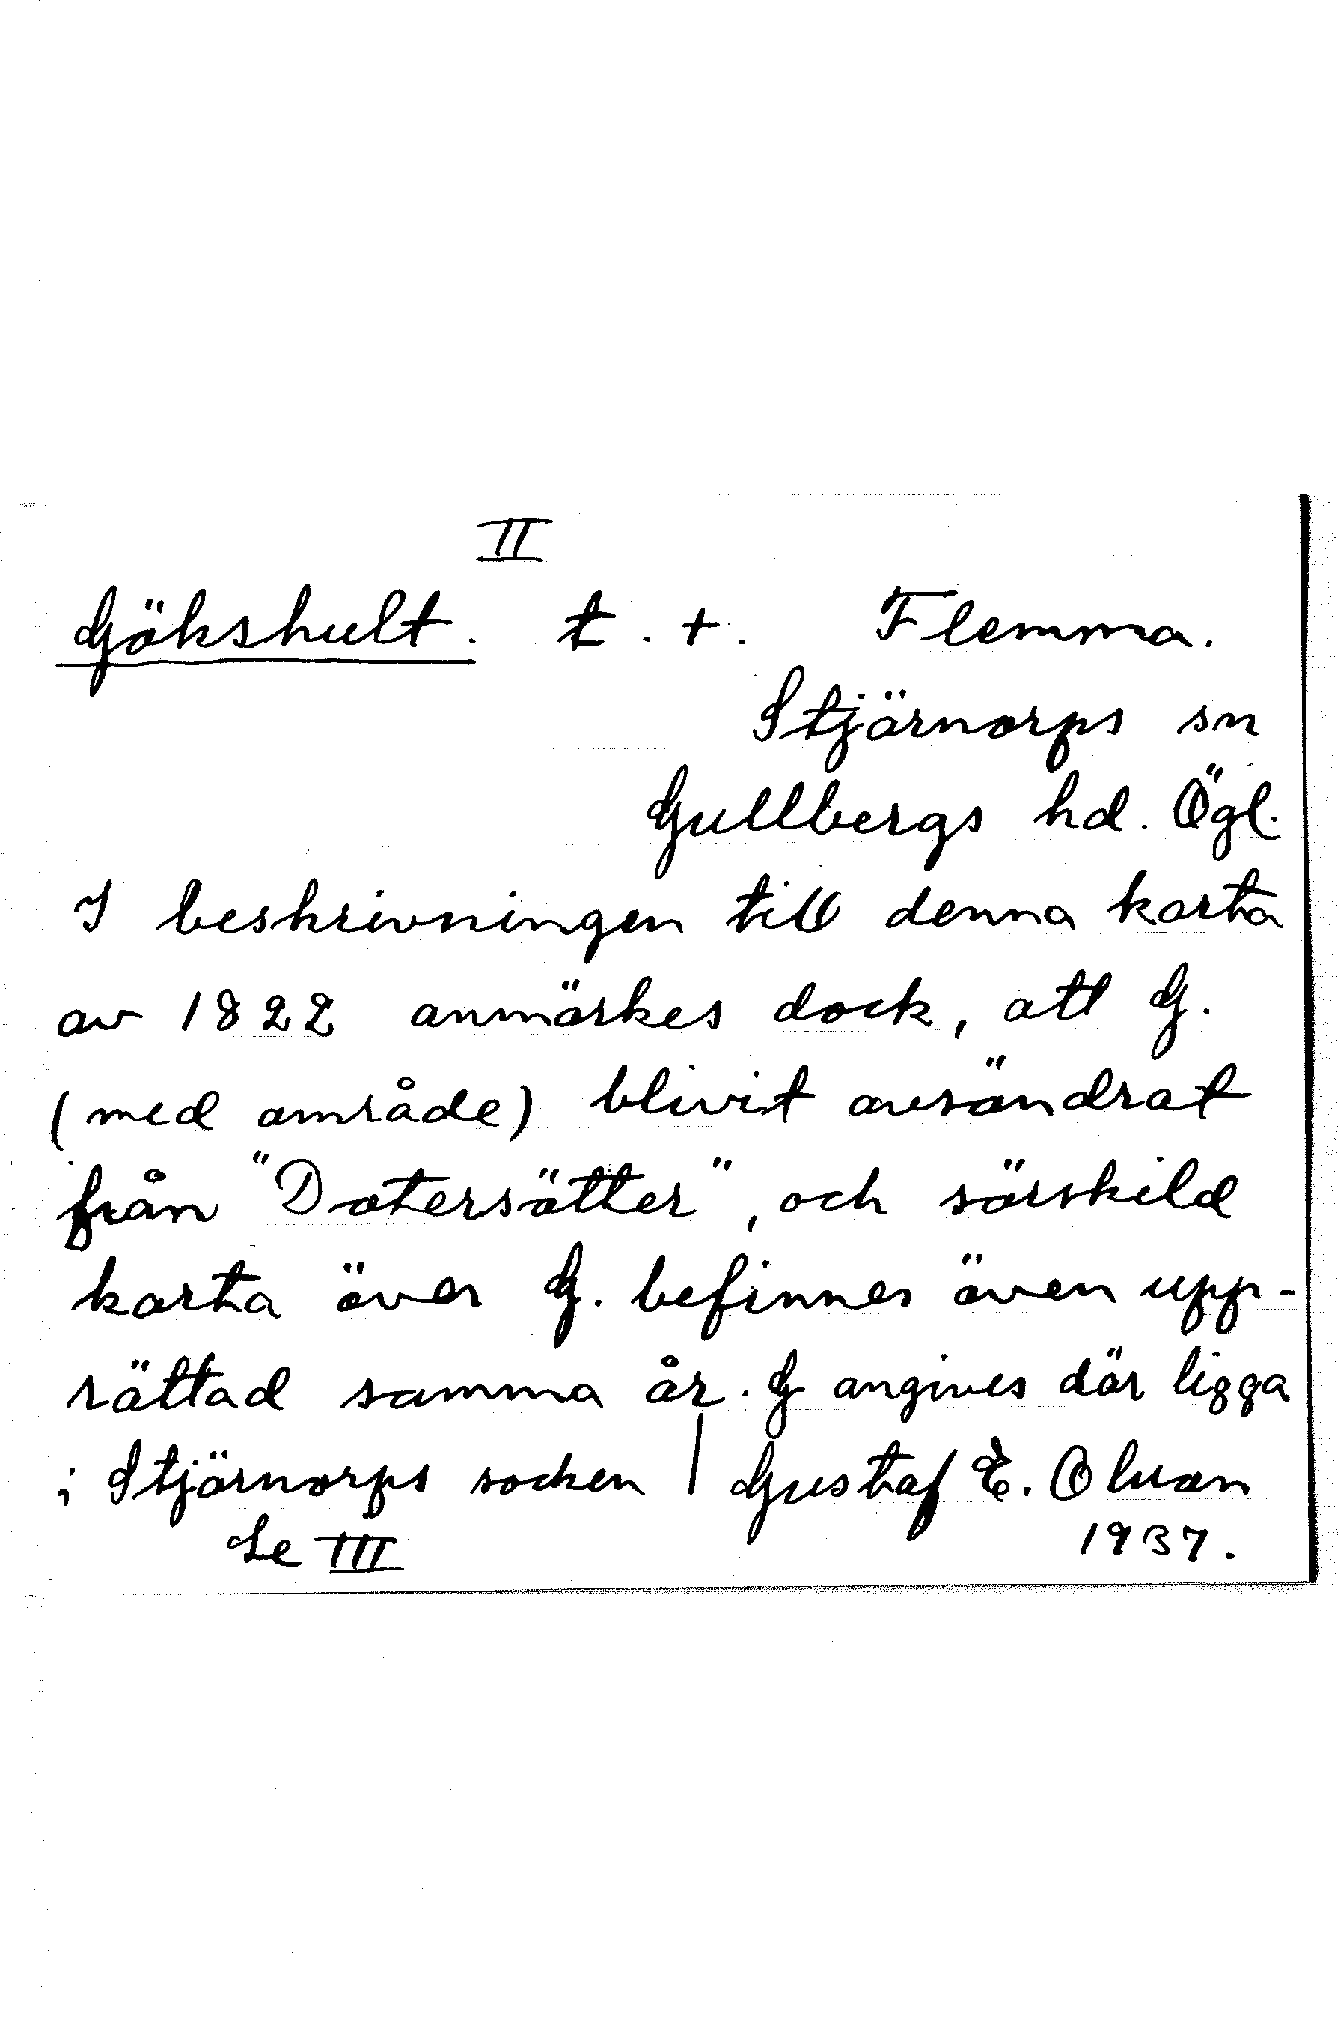 II
Gökshult. t. +. Flemma.
Stjärnorps sn
Gullbergs hd. Ögl.
I beskrivningen till denna karta
av 1822 anmärkes dock, att G.
(med område) blivit avsöndrat
från "Dotersätter", och särskild
karta över G. befinnes även upp-
rättad samma år. G angives där ligga
i Stjärnorps socken | Gustaf E. Olson
Se III 1937.